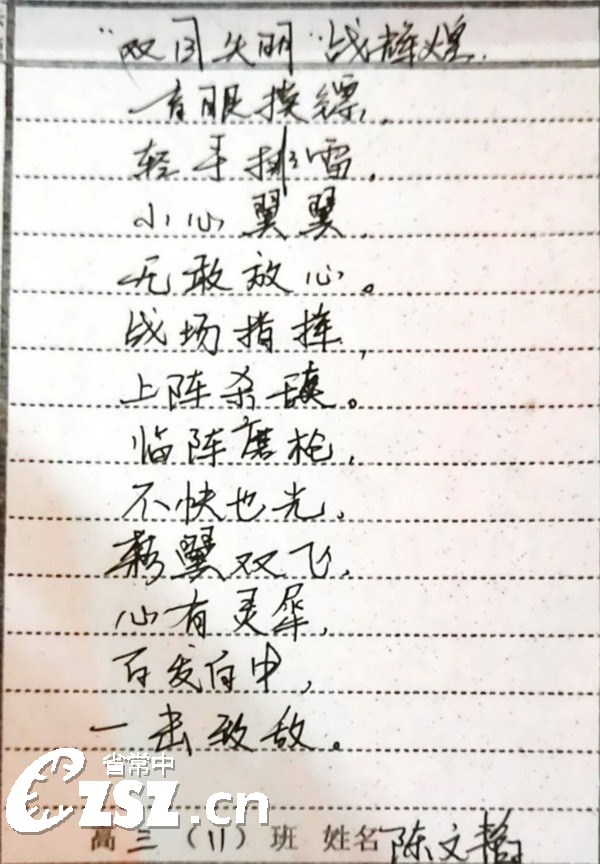 “双目失明”战辉煌.
盲眼摸镖,
轻手排雷,
小心翼翼,
无敢放心。
战场指挥,
上阵杀敌。
临阵磨枪,
不快也光,
翼双飞,
心有灵犀,
百发百中,
一击致敌。
省常中
CZSZ.cn
高三(11)班 姓名 陈文韬